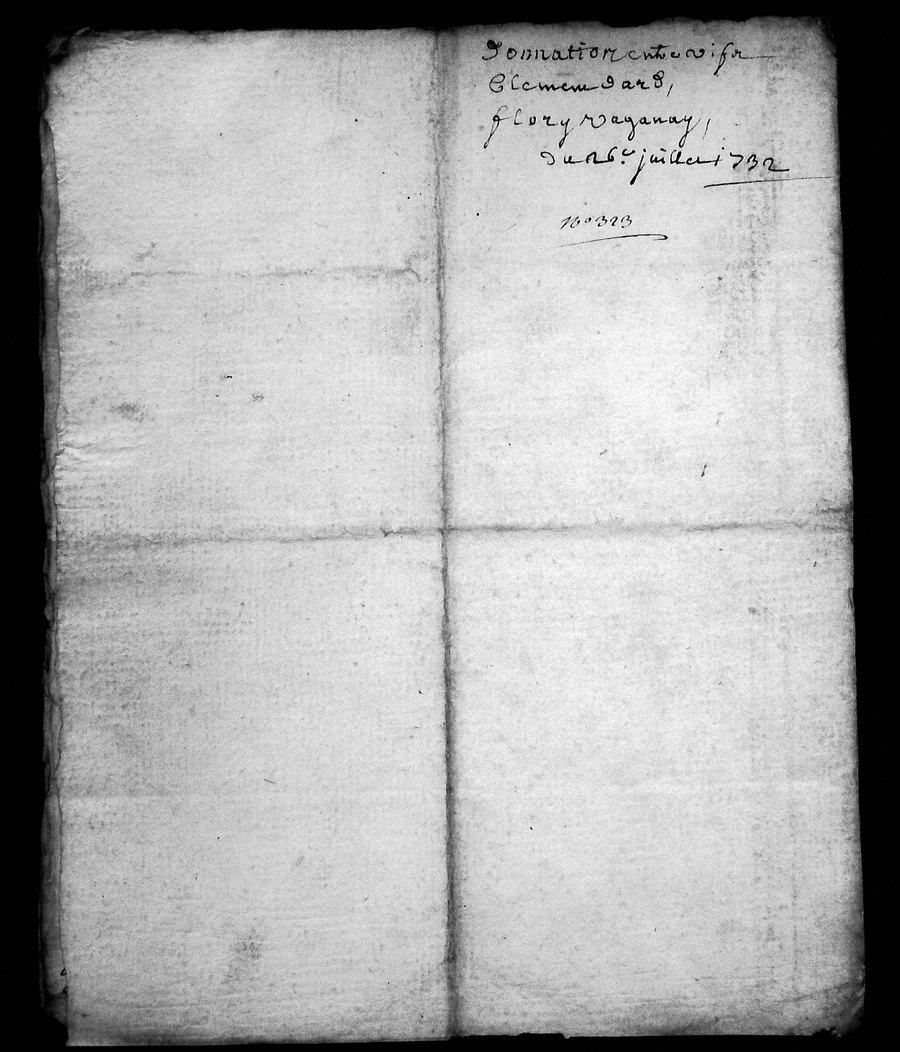 Donnation entre vifs
Clemem dard,
flory vaganay,
du 26e juillet 1732
no 323